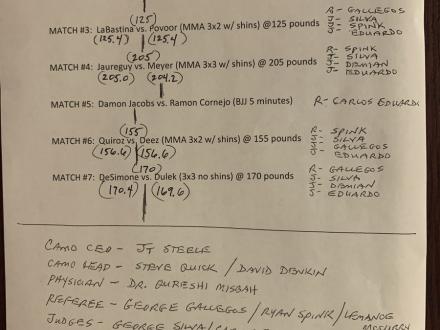 (125)
R- GALLEGOS
MATCH #3: LaBastina vs. Povoor (MMA 3x2 w/ shins) @125 pounds
J- SILVA
J- SPINK
(125.4) (125.4)
J- EDUARDO
(205)
R- SPINK
MATCH #4: Jaureguy vs. Meyer (MMA 3x3 w/ shins) @ 205 pounds
J- SILVA
J- DEMIAN
(205.0) (204.2)
J- EDUARDO
MATCH #5: Damon Jacobs vs. Ramon Cornejo (BJJ 5 minutes)
R- CARLOS EDUARDO
(155)
R- SPINK
MATCH #6: Quiroz vs. Deez (MMA 3x2 w/ shins) @ 155 pounds
J- SILVA
J- GALLEGOS
(156.6) (156.6)
J- EDUARDO
(170)
R- GALLEGOS
MATCH #7: DeSimone vs. Dulek (3x3 no shins) @ 170 pounds
J- SILVA
J- DEMIAN
(170.4) (169.6)
J- EDUARDO
CAMO CEO - JT STEELE
CAMO LEAD - STEVE QUICK / DAVID DENKIN
PHYSICIAN - DR. QURESHI MISBAH
REFEREE - GEORGE GALLEGOS / RYAN SPINK /
JUDGES - GEORGE SILVA /